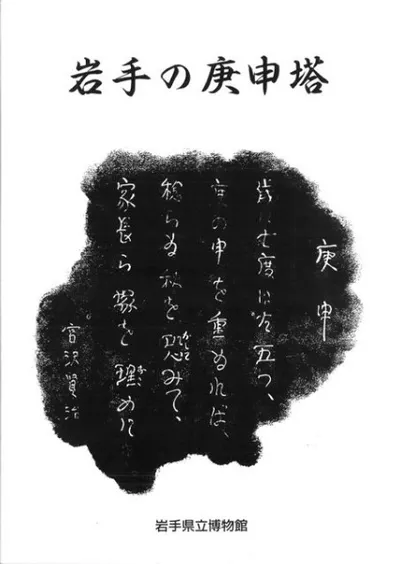 岩手の庚申塔
庚申
歳に七度はた五つ、
庚の申を重ぬれば、
稔らぬ秋を恐みて、
家長ら塚を理めにき
宮沢賢治
岩手県立博物館